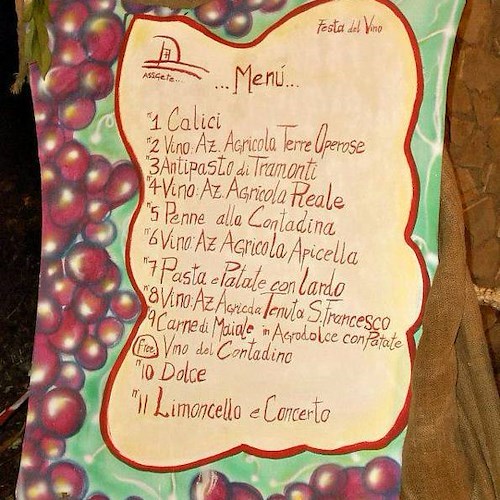 Festa del Vino
ASSGETE...
...Menú...
n°1 Calici
n°2 Vino: Az. Agricola Terre Operose
n°3 Antipasto di Tramonti
n°4 Vino: Az. Agricola Reale
n°5 Penne alla Contadina
n°6 Vino: Az Agricola Apicella
n°7 Pasta e Patate con lardo
n°8 Vino: Az Agricola Tenuta S. Francesco
n°9 Carne di Maiale in Agrodolce con Patate
Free Vino del Contadino
n°10 Dolce
n°11 Limoncello e Concerto